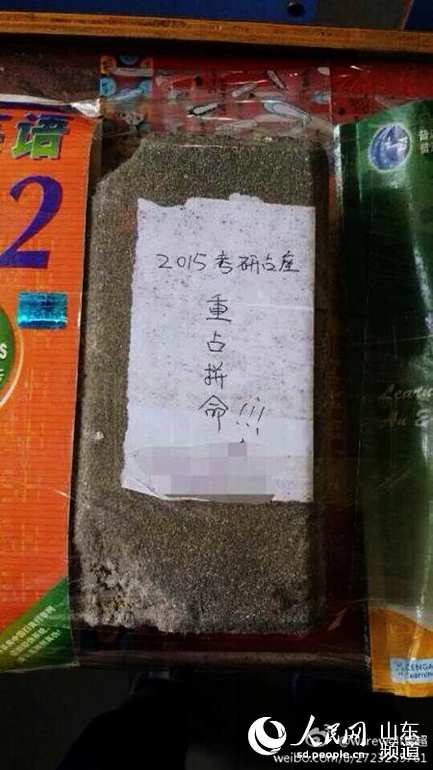 语
2
2015考研占座
重占拼命!!!
Learn
CENGA
人民网 山东频道
sd.people.cn